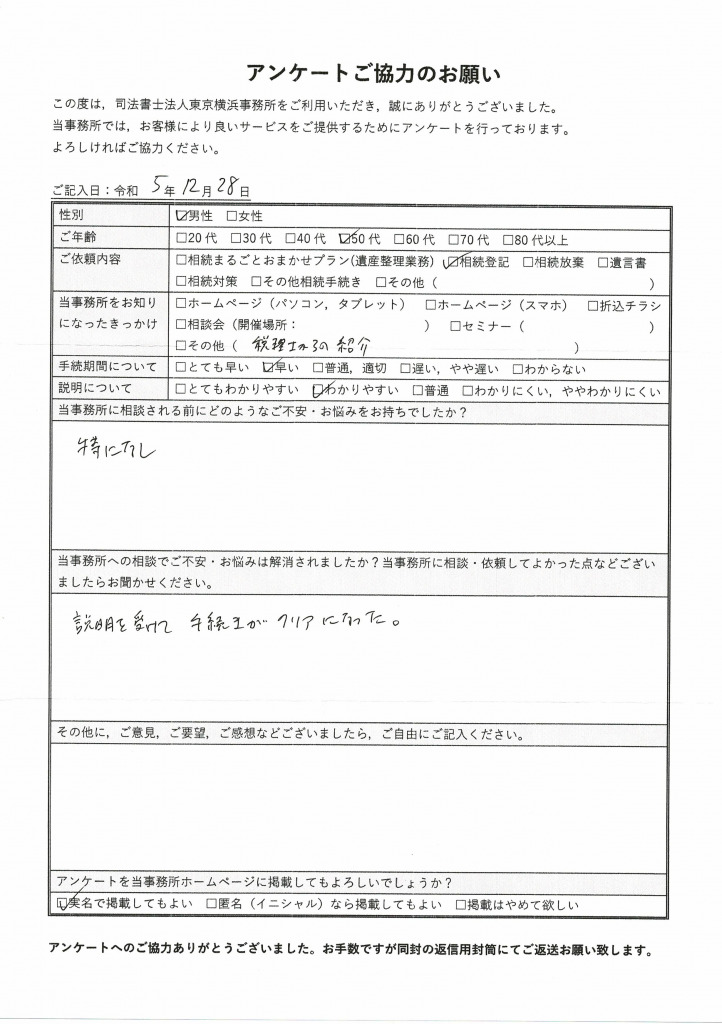 アンケートご協力のお願い
この度は，司法書士法人東京横浜事務所をご利用いただき，誠にありがとうございました。
当事務所では，お客様により良いサービスをご提供するためにアンケートを行っております。
よろしければご協力ください。
ご記入日：令和 5年 12月 28日
性別 ☑男性 □女性
ご年齢 □20代 □30代 □40代 ☑50代 □60代 □70代 □80代以上
ご依頼内容 □相続まるごとおまかせプラン(遺産整理業務) ☑相続登記 □相続放棄 □遺言書
□相続対策 □その他相続手続き □その他（ ）
当事務所をお知り □ホームページ（パソコン，タブレット） □ホームページ（スマホ） □折込チラシ
になったきっかけ □相談会（開催場所： ） □セミナー（ ）
□その他（ 税理士からの紹介 ）
手続期間について □とても早い ☑早い □普通，適切 □遅い，やや遅い □わからない
説明について □とてもわかりやすい ☑わかりやすい □普通 □わかりにくい，ややわかりにくい
当事務所に相談される前にどのようなご不安・お悩みをお持ちでしたか？
特になし
当事務所への相談でご不安・お悩みは解消されましたか？当事務所に相談・依頼してよかった点などござい
ましたらお聞かせください。
説明を受けて 手続きがクリアになった。
その他に，ご意見，ご要望，ご感想などございましたら，ご自由にご記入ください。
アンケートを当事務所ホームページに掲載してもよろしいでしょうか？
☑実名で掲載してもよい □匿名（イニシャル）なら掲載してもよい □掲載はやめて欲しい
アンケートへのご協力ありがとうございました。お手数ですが同封の返信用封筒にてご返送お願い致します。